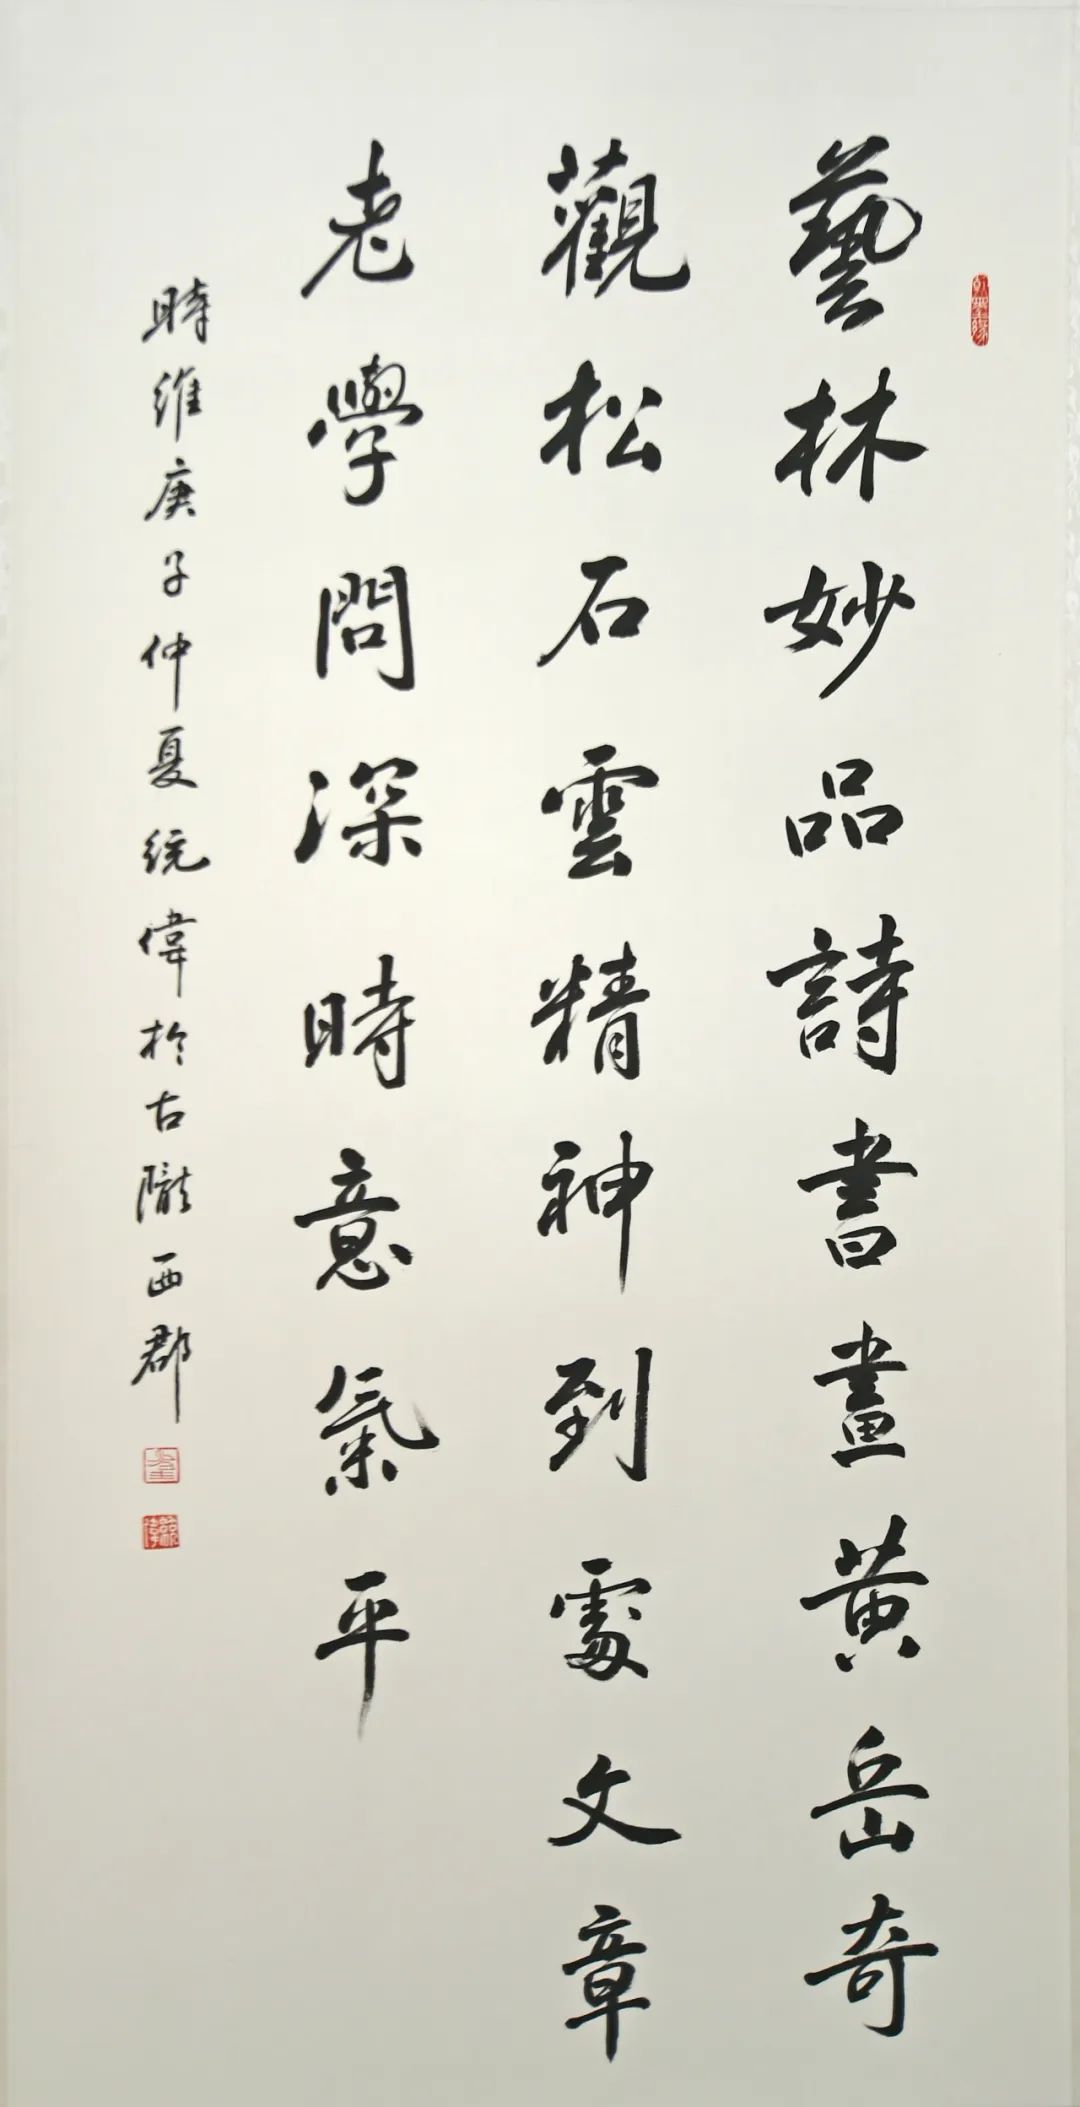 藝林妙品詩書畫黄岳奇
觀松石雲精神到處文章
老學問深時意氣平
時維庚子仲夏统偉於古隴西郡